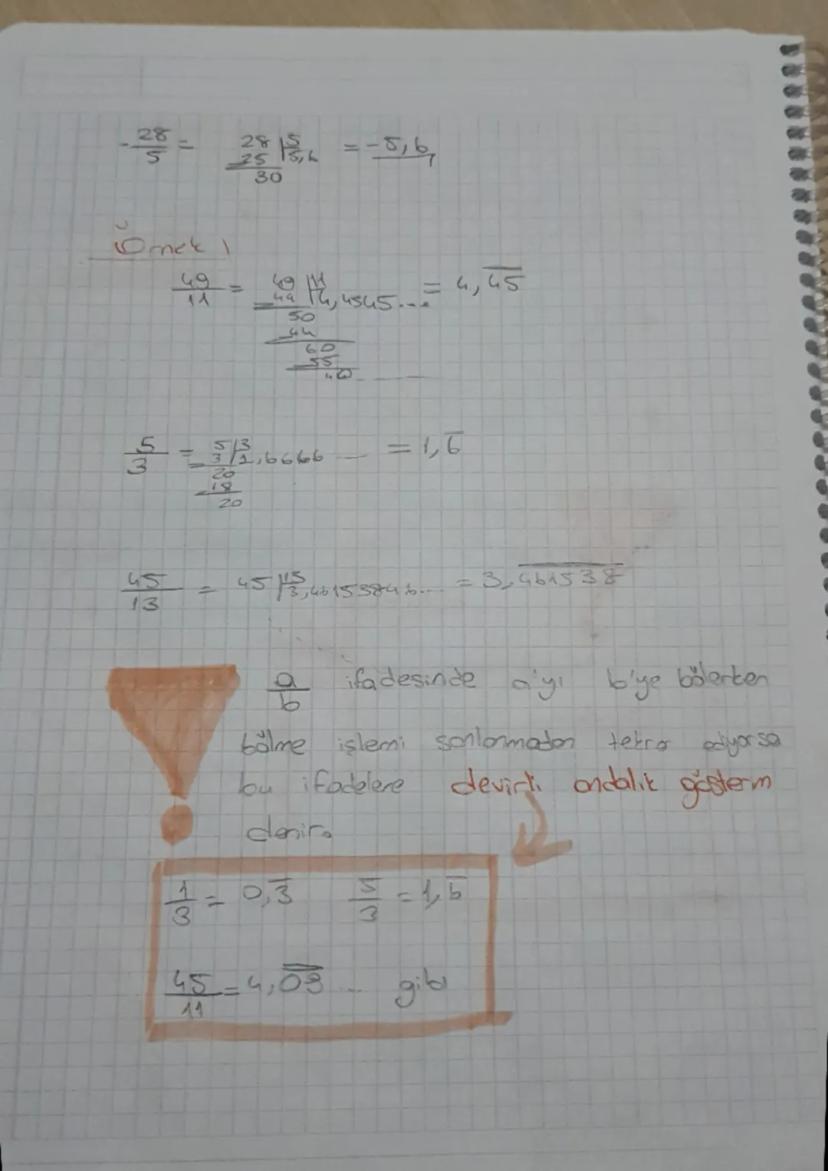 -28/5 = 28 | 5 5,6 = -5,6
25
30
Örnek 1
49/11 = 49 | 11 4,4545... = 4,4̅5̅
44
50
44
60
55
5/3 = 5 | 3 1,6666 ... = 1,6̅
3
20
18
20
45/13 = 45 | = 3,4̅6̅1̅5̅3̅8̅
a/b ifadesinde a'yı b'ye bölerken
bölme işlemi sonlanmadan tekrar ediyorsa
bu ifadelere devirli ondalık gösterm
denir.
1/3 = 0,3̅ 5/3 = 1,6̅
45/11 = 4,0̅9̅ ... gibi